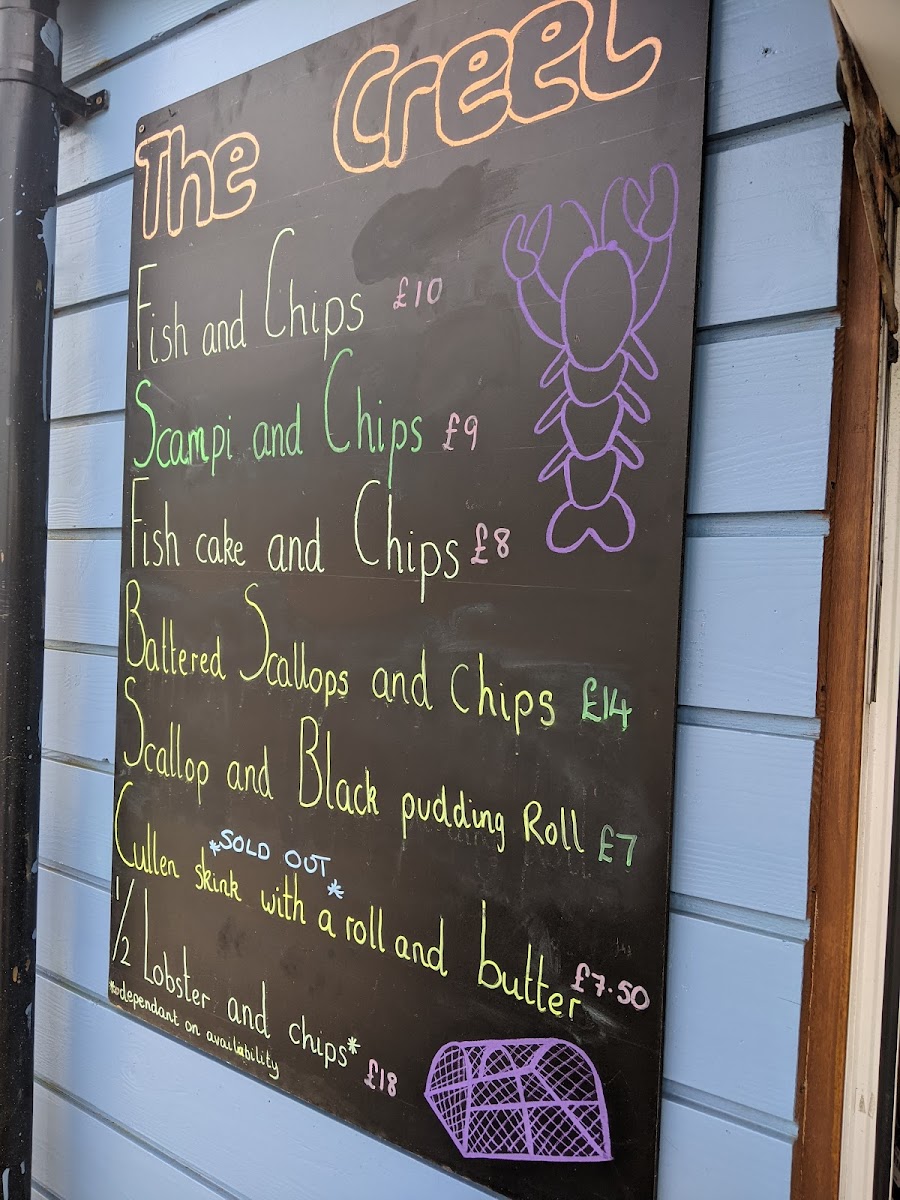 The Creel
Fish and Chips £10
Scampi and Chips £9
Fish cake and Chips £8
Battered Scallops and Chips £14
Scallop and Black pudding Roll £7
*SOLD OUT*
Cullen skink with a roll and butter £7.50
1/2 Lobster and chips* £18
*dependant on availability